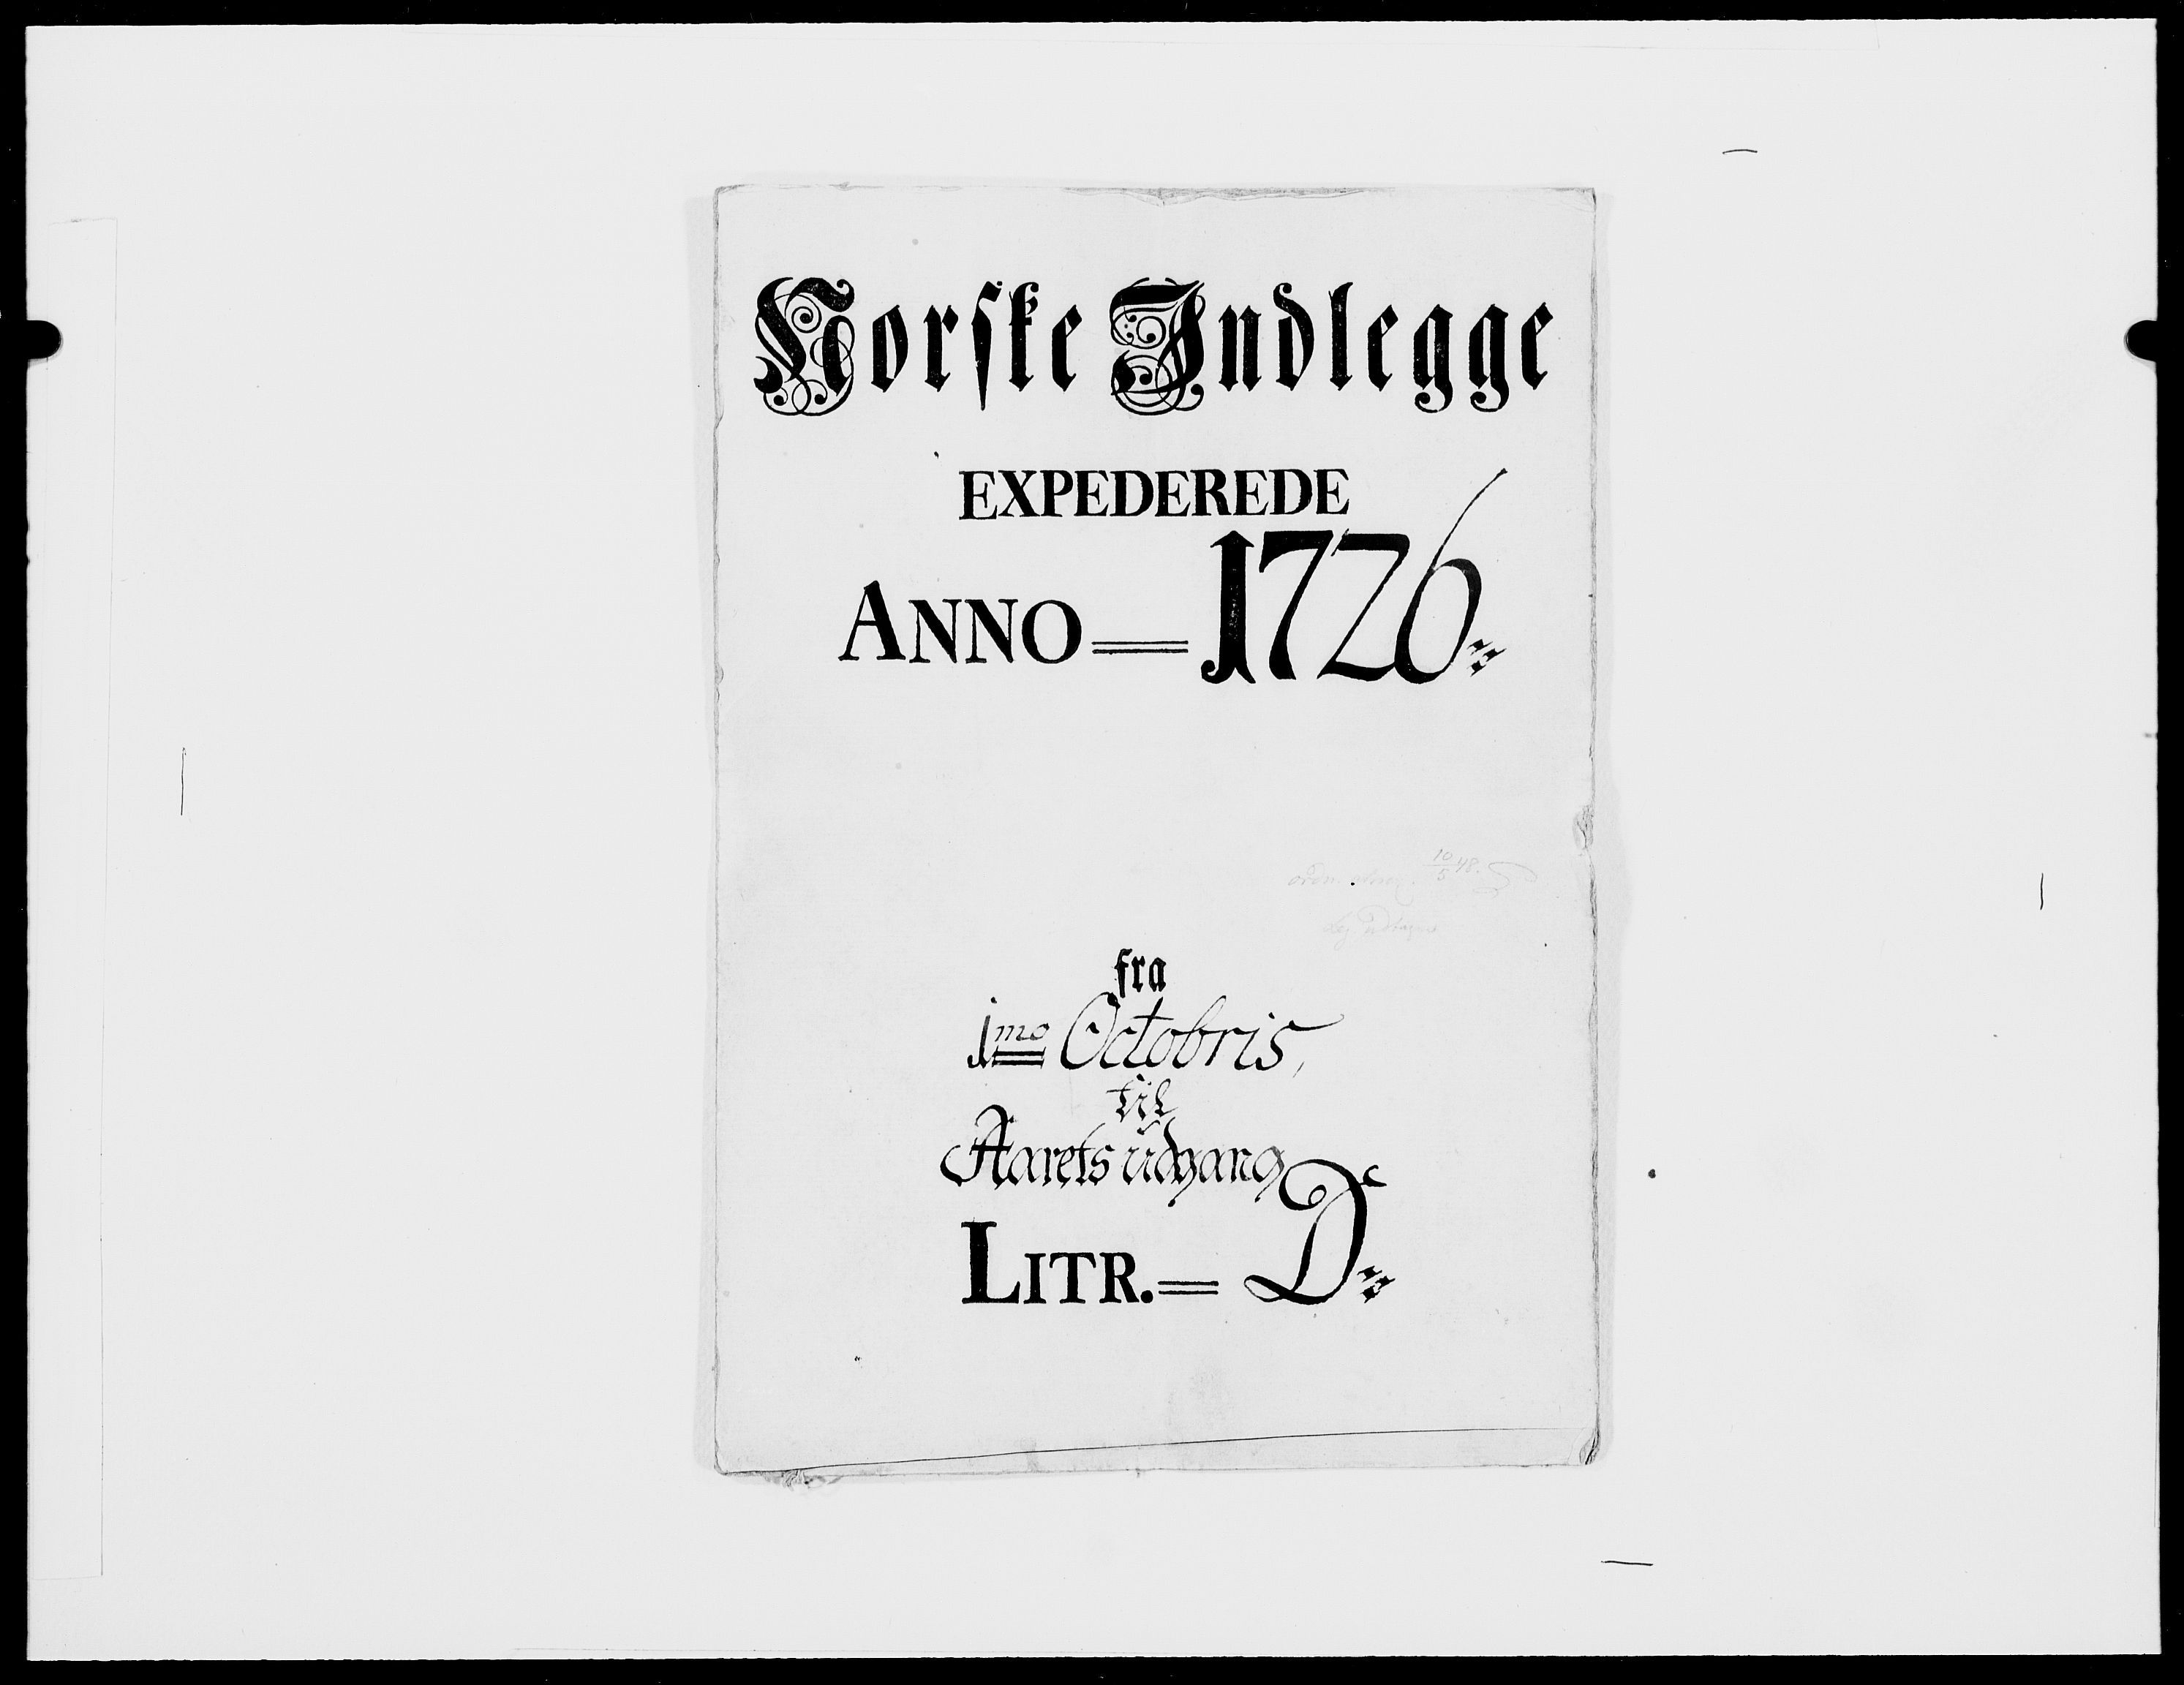 Norske Indlegge
EXPEDEREDE
ANNO = 1726
10/5 48.
fra
1mo Octobris,
til
Aarets üdgang
LITR. = D